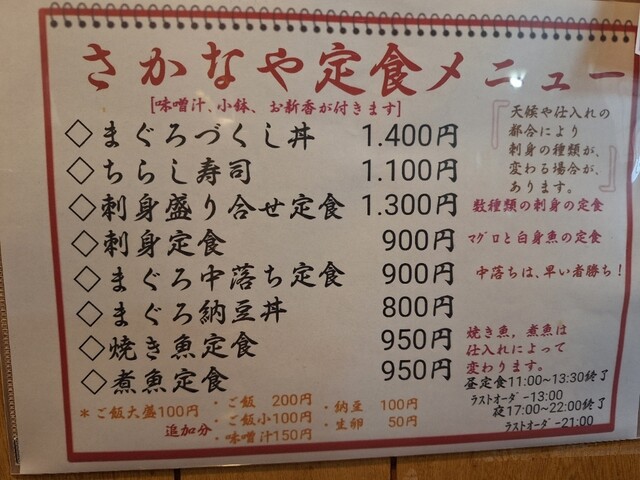 さかなや定食メニュー
[味噌汁、小鉢、お新香が付きます]
◇まぐろづくし丼 1.400円
◇ちらし寿司 1.100円
◇刺身盛り合せ定食 1.300円 数種類の刺身の定食
◇刺身定食 900円 マグロと白身魚の定食
◇まぐろ中落ち定食 900円 中落ちは、早い者勝ち!
◇まぐろ納豆丼 800円
◇焼き魚定食 950円
◇煮魚定食 950円
『天候や仕入れの
都合により
刺身の種類が、
変わる場合が、
あります。』
焼き魚，煮魚は
仕入れによって
変わります。
昼定食11:00~13:30終了
ラストオーダー13:00
夜17:00~22:00終了
ラストオーダー21:00
*ご飯大盛100円
追加分
・ご飯 200円
・ご飯小100円
・味噌汁150円
・納豆 100円
・生卵 50円